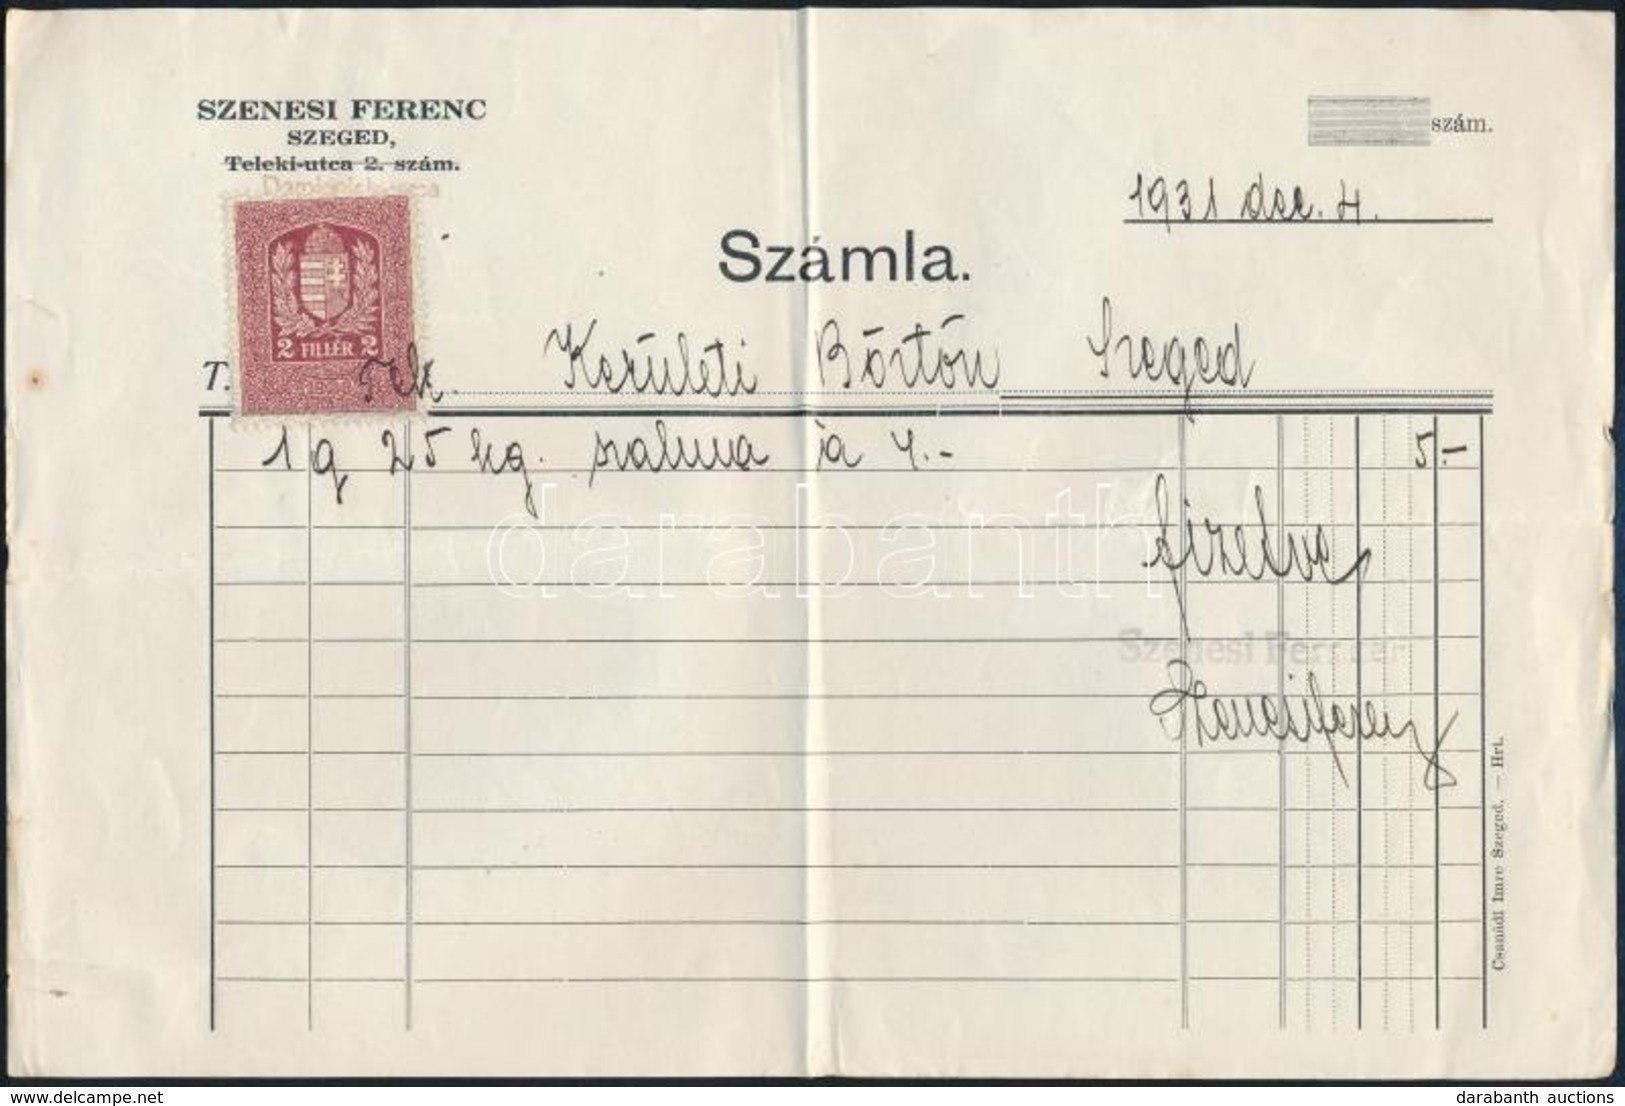 SZENESI FERENC
SZEGED,
Teleki-utca 2. szám.
szám.
1931 dec. 4.
Számla.
2 FILLÉR 2
T. Tek. Kerületi Börtön Szeged
1 q 25 kg. szalma à 4.- 5-
fizetve
darabanth
Szenesi Ferenc
Szenesi Ferenc
Csanádi Imre Szeged. — Hrt.
delcampe.net
darabanth auctions